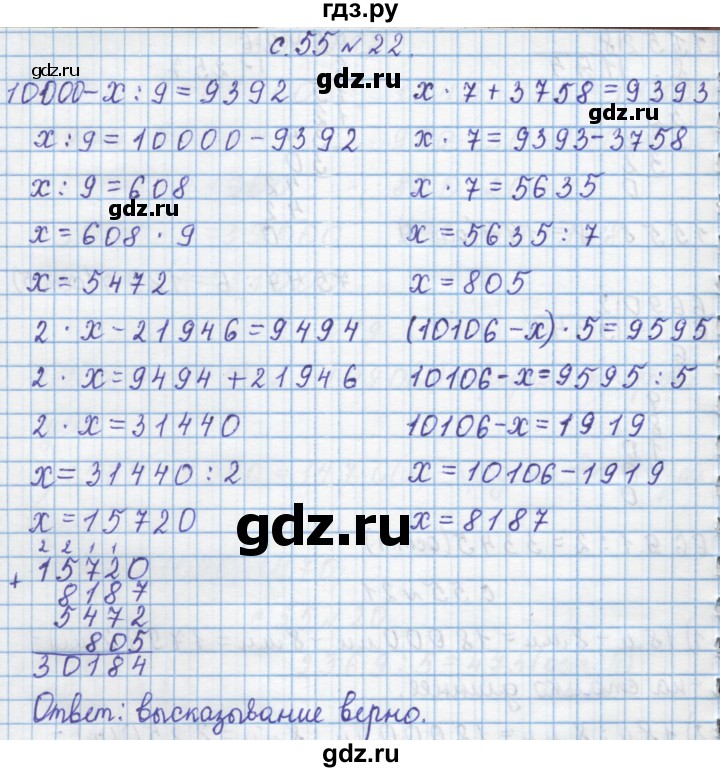 гдз.ру
с.55 №22.
gdz.ru
10000-х:9=9392
х:9=10000-9392
х:9=608
gdz.ru
х=608·9
х=5472
х·7+3758=9393
gdz.ru
х·7=9393-3758
х·7=5635
х=5635:7
х=805
2·х-21946=9494
2·х=9494+21946
2·х=31440
х=31440:2
х=15720
(10106-х)·5=9595
10106-х=9595:5
10106-х=1919
х=10106-1919
х=8187
gdz.ru
2 2 1 1
+ 15720
8187
5472
805
30184
Ответ: высказывание верно.
gdz.ru